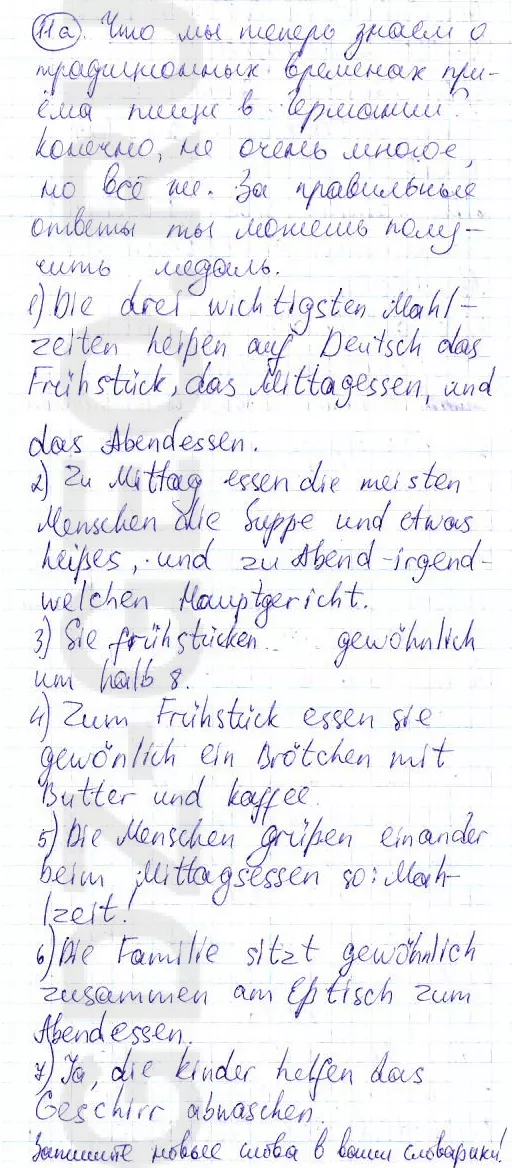 11a. Что мы теперь знаем о
традиционных временах при-
ёма пищи в Германии?
Конечно, не очень многое,
но всё же. За правильные
ответы ты можешь полу-
чить медаль.
1) Die drei wichtigsten Mahl-
zeiten heißen auf Deutsch das
Frühstück, das Mittagessen, und
das Abendessen.
2) Zu Mittag essen die meisten
Menschen die Suppe und etwas
heißes, und zu Abend-irgend-
welchen Hauptgericht.
3) Sie frühstücken gewöhnlich
um halb 8.
4) Zum Frühstück essen sie
gewönlich ein Brötchen mit
Butter und kaffee.
5) Die Menschen grüßen einander
beim Mittagsessen so: Mah-
lzeit!
6) Die Familie sitzt gewöhnlich
zusammen am Eßtisch zum
Abendessen.
7) Ja, die kinder helfen das
Geschirr abwaschen.
Запишите новые слова в ваши словарики!
GDZ-GEO.RU